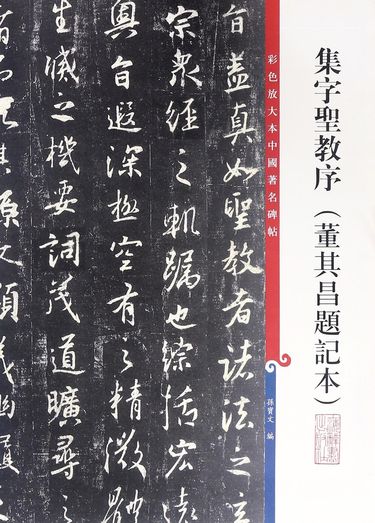 集字聖教序（董其昌題記本）
彩色放大本中國著名碑帖
孫寶文 編
旨蓋真如聖教者諸法之玄
宗眾經之軌躅也綜括宏遠
奧旨遐深極空有之精微體
生滅之機要詞茂道曠尋之
其源文顯義幽履